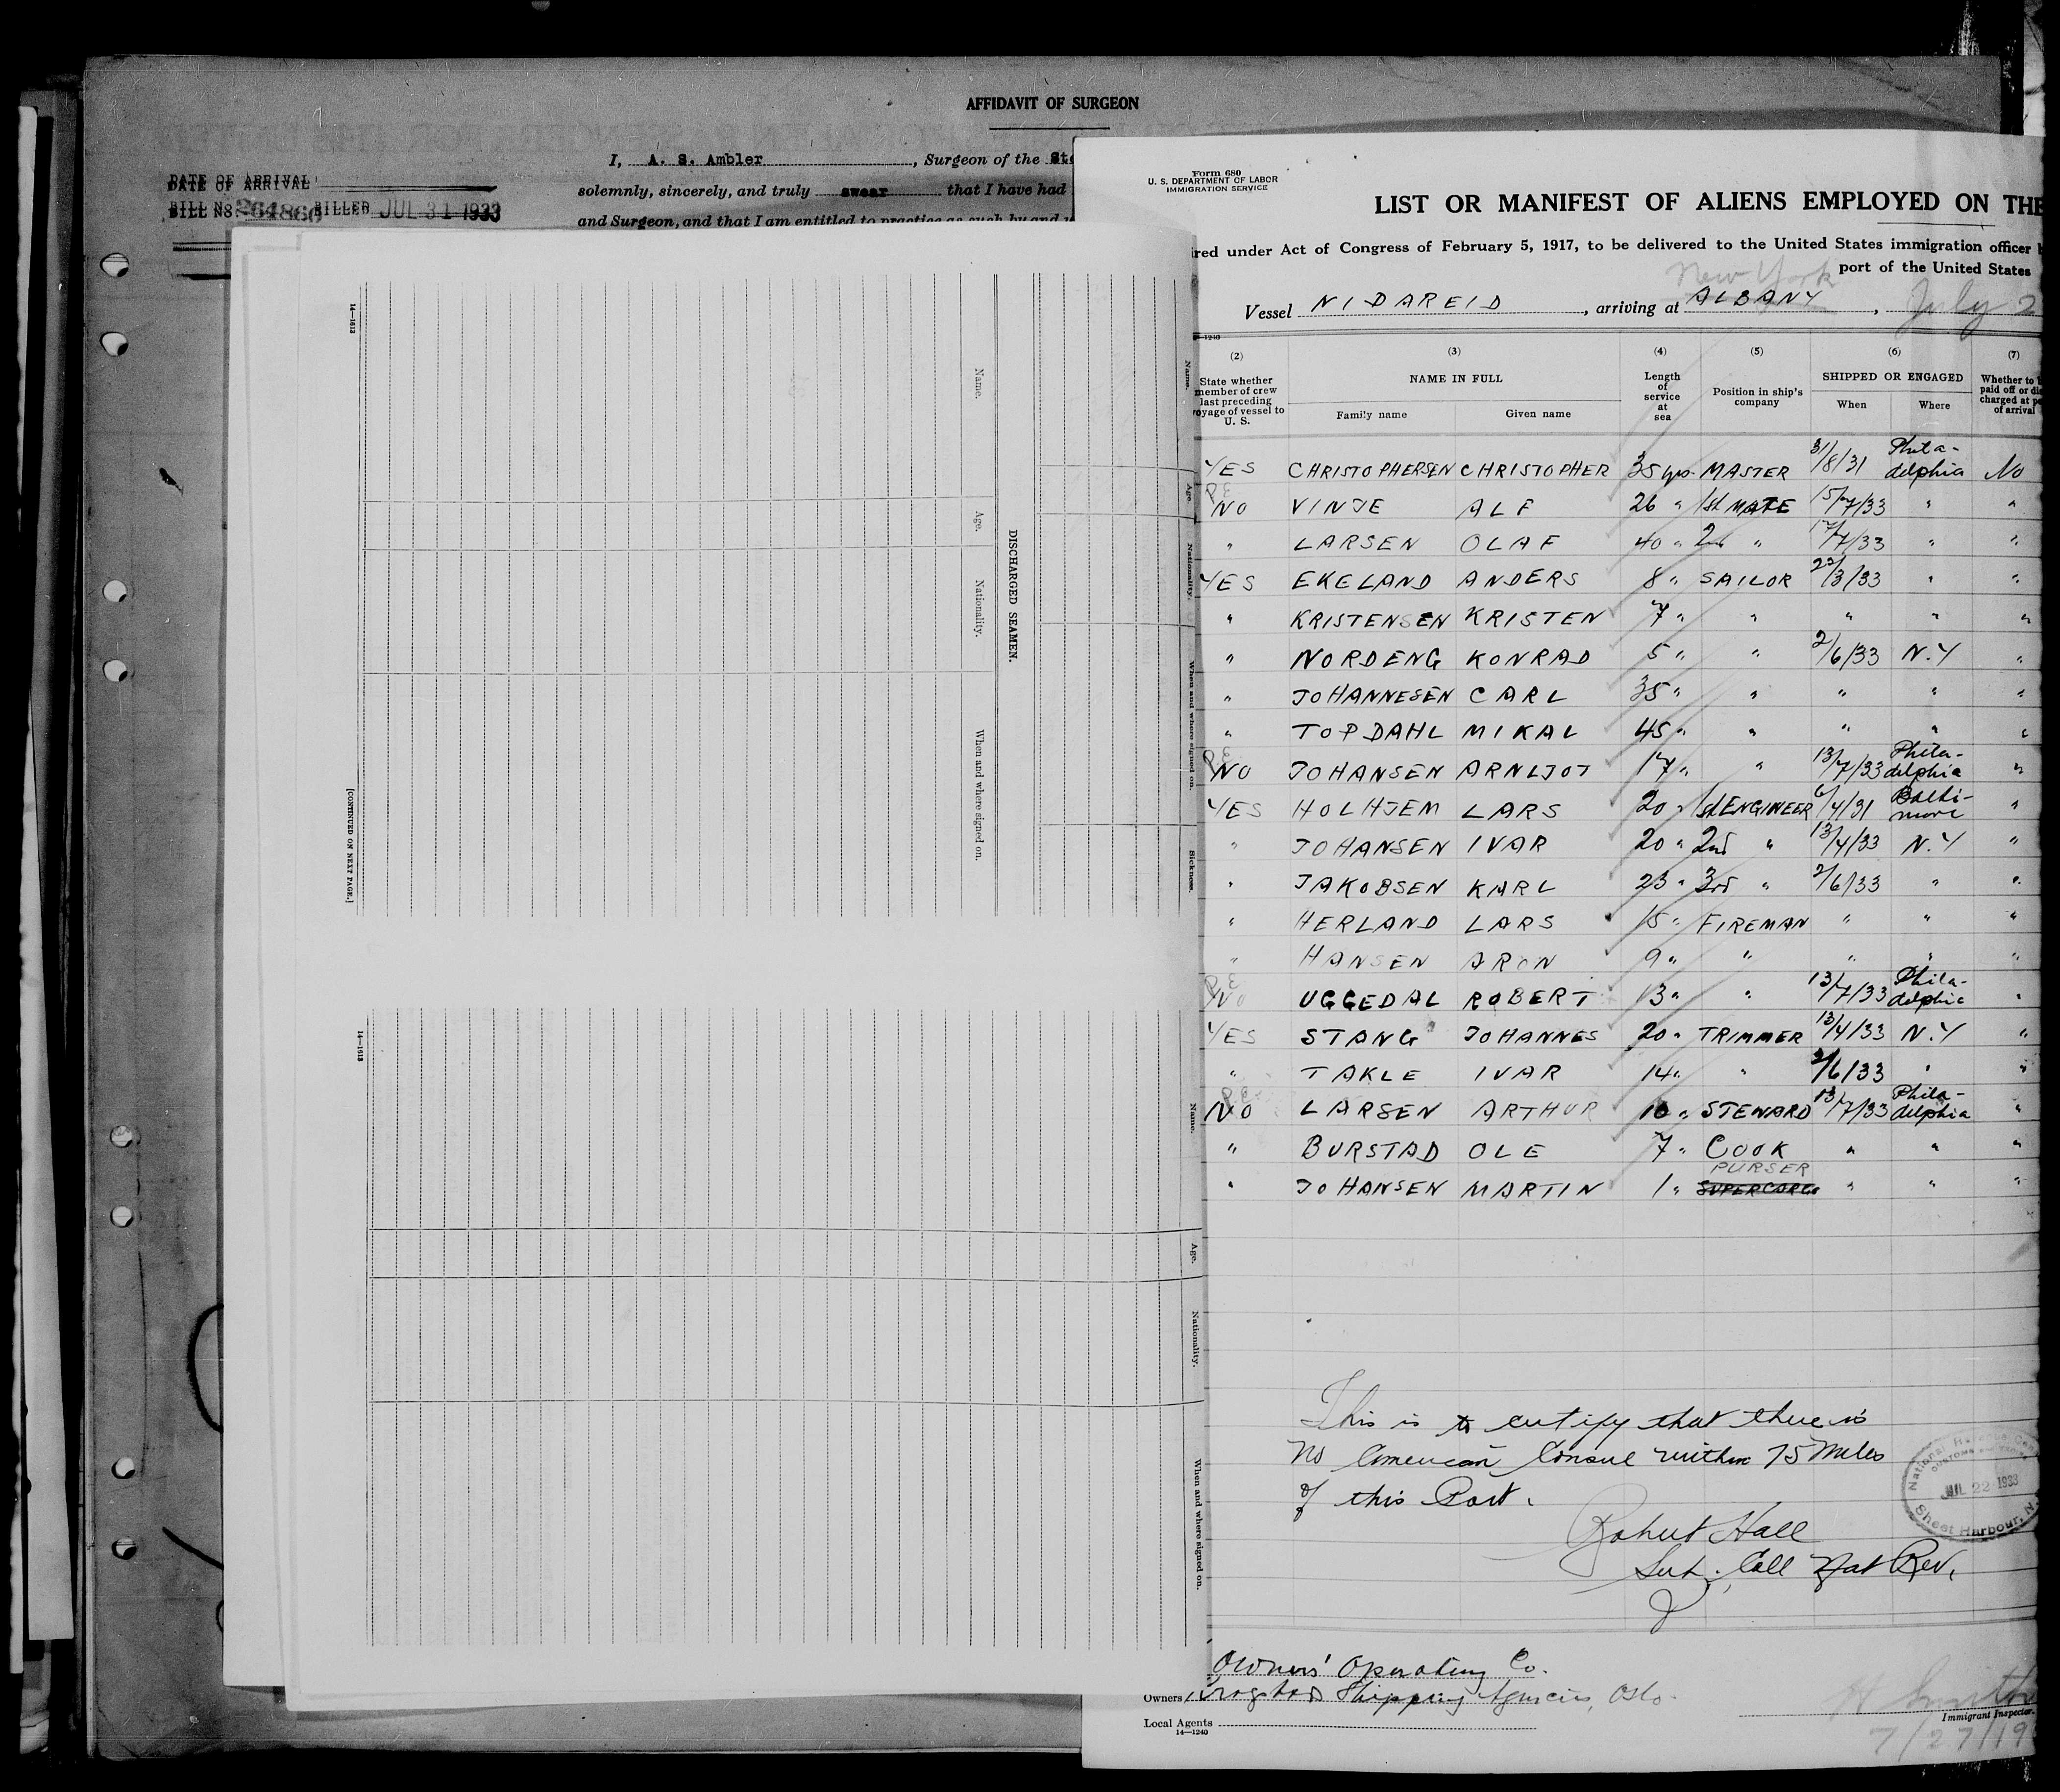 AFFIDAVIT OF SURGEON
I, A. S. Ambler, Surgeon of the
solemnly, sincerely, and truly swear that I have had
and Surgeon, and that I am entitled to practice as such by and
DATE OF ARRIVAL
BILL No. 264866 BILLED JUL 31 1933
14—1613
[CONTINUED ON NEXT PAGE.]
DISCHARGED SEAMEN.
Name. Age. Nationality. When and where signed on.
Name. Age. Nationality. When and where signed on. Sickness.
14—1613
Name. Age. Nationality. When and where signed on.
Form 680
U. S. DEPARTMENT OF LABOR
IMMIGRATION SERVICE
LIST OR MANIFEST OF ALIENS EMPLOYED ON THE
ired under Act of Congress of February 5, 1917, to be delivered to the United States immigration officer
New York port of the United States
Vessel NIDAREID, arriving at ALBANY, July 2
—1240
(2) (3) (4) (5) (6) (7)
State whether member of crew last preceding voyage of vessel to U. S. NAME IN FULL Length of service at sea Position in ship's company SHIPPED OR ENGAGED Whether to paid off or dis charged at po of arrival
Family name Given name When Where
YES CHRISTOPHERSEN CHRISTOPHER 35 yrs. MASTER 31/8/31 Phila-delphia No
P.E. NO VINJE ALF 26 " 1st MATE 15/7/33 " "
" LARSEN OLAF 40 " 2nd " 17/7/33 " "
YES EKELAND ANDERS 8 " SAILOR 22/3/33 " "
" KRISTENSEN KRISTEN 7 " " " " "
" NORDENG KONRAD 5 " " 2/6/33 N.Y "
" JOHANNESEN CARL 35 " " " " "
" TOPDAHL MIKAL 45 " " " " "
P.E. NO JOHANSEN ARNLJOT 17 " " 13/7/33 Phila-delphia "
YES HOLHJEM LARS 20 " 1st ENGINEER 6/4/31 Balti-more "
" JOHANSEN IVAR 20 " 2nd " 13/4/33 N.Y "
" JAKOBSEN KARL 23 " 3rd " 2/6/33 " "
" HERLAND LARS 15 " FIREMAN " " "
" HANSEN ARON 9 " " " " "
P.E. NO UGGEDAL ROBERT 13 " " 13/7/33 Phila-delphia "
YES STANG JOHANNES 20 " TRIMMER 13/4/33 N.Y "
" TAKLE IVAR 14 " " 2/6/33 " "
P.E. NO LARSEN ARTHUR 10 " STEWARD 13/7/33 Phila-delphia "
" BURSTAD OLE 7 " COOK " " "
PURSER
" JOHANSEN MARTIN 1 " SUPERCARGO " " "
This is to certify that there is
No American Consul within 75 Miles
of this Port.
Robert Hall
Sub. Coll Nat Rev.
National Revenue
CUSTOMS
JUL 22 1933
Sheet Harbour, N.
Owners' Operating Co.
Owners Krogstad Shipping Agencies, Oslo.
Local Agents
14—1240
Immigrant Inspector.
7/27/19